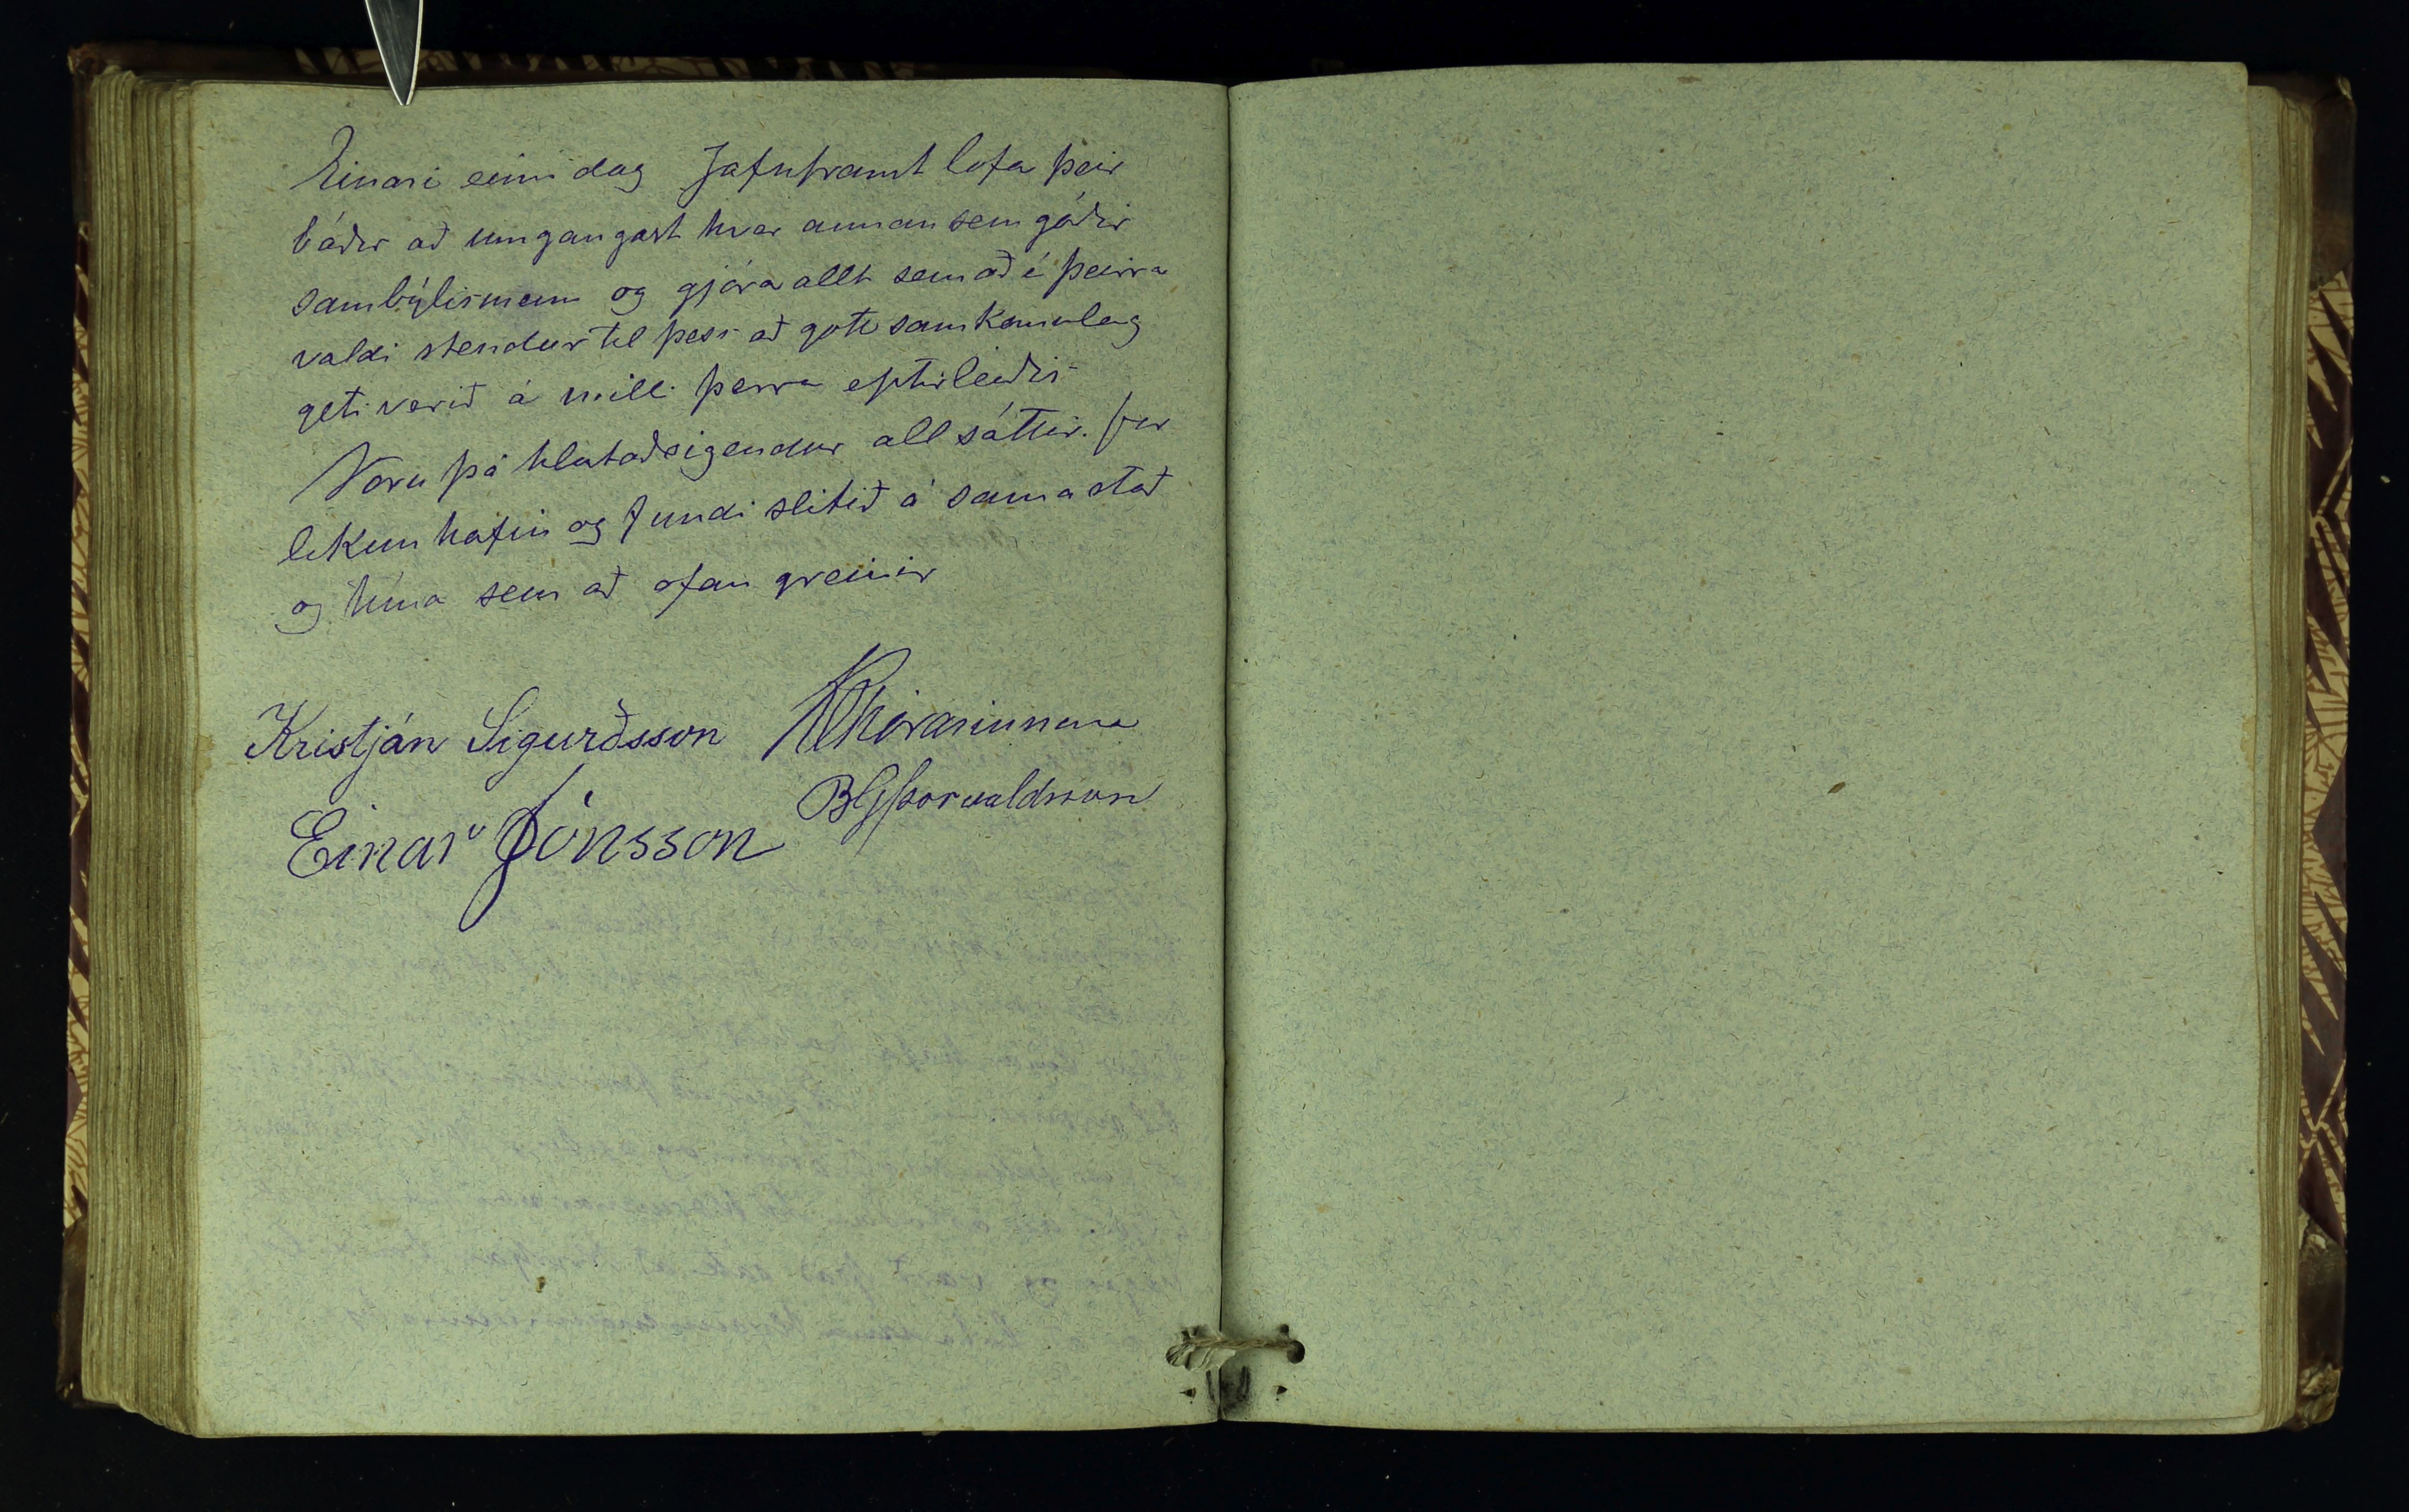 Einari einn dag Jafnframt lofa þeir
báðir að umgangast hver annan sem góðir
sambýlismenn og gjöra allt sem að í þeirra
valdi stendur til þess að gott samkomulag
geti verið á milli þerra eptirleiðis
Voru þá hlutaðeigendur all sáttir. for
lekun hafin og Fundi slitið á sama stað
og tíma sem að ofan greinir
Kristján Sigurðsson
BGÞorvaldsson
Einar Jónsson